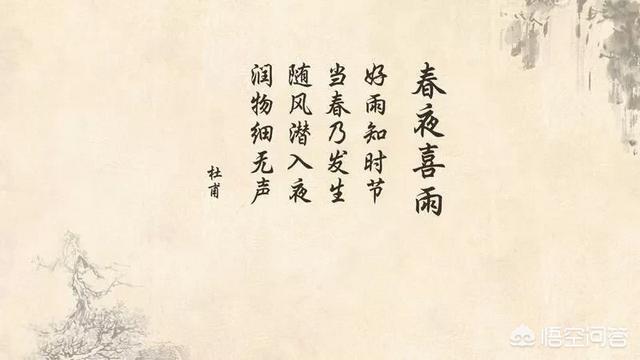 春夜喜雨
好雨知时节
当春乃发生
随风潜入夜
润物细无声
杜甫
悟空问答